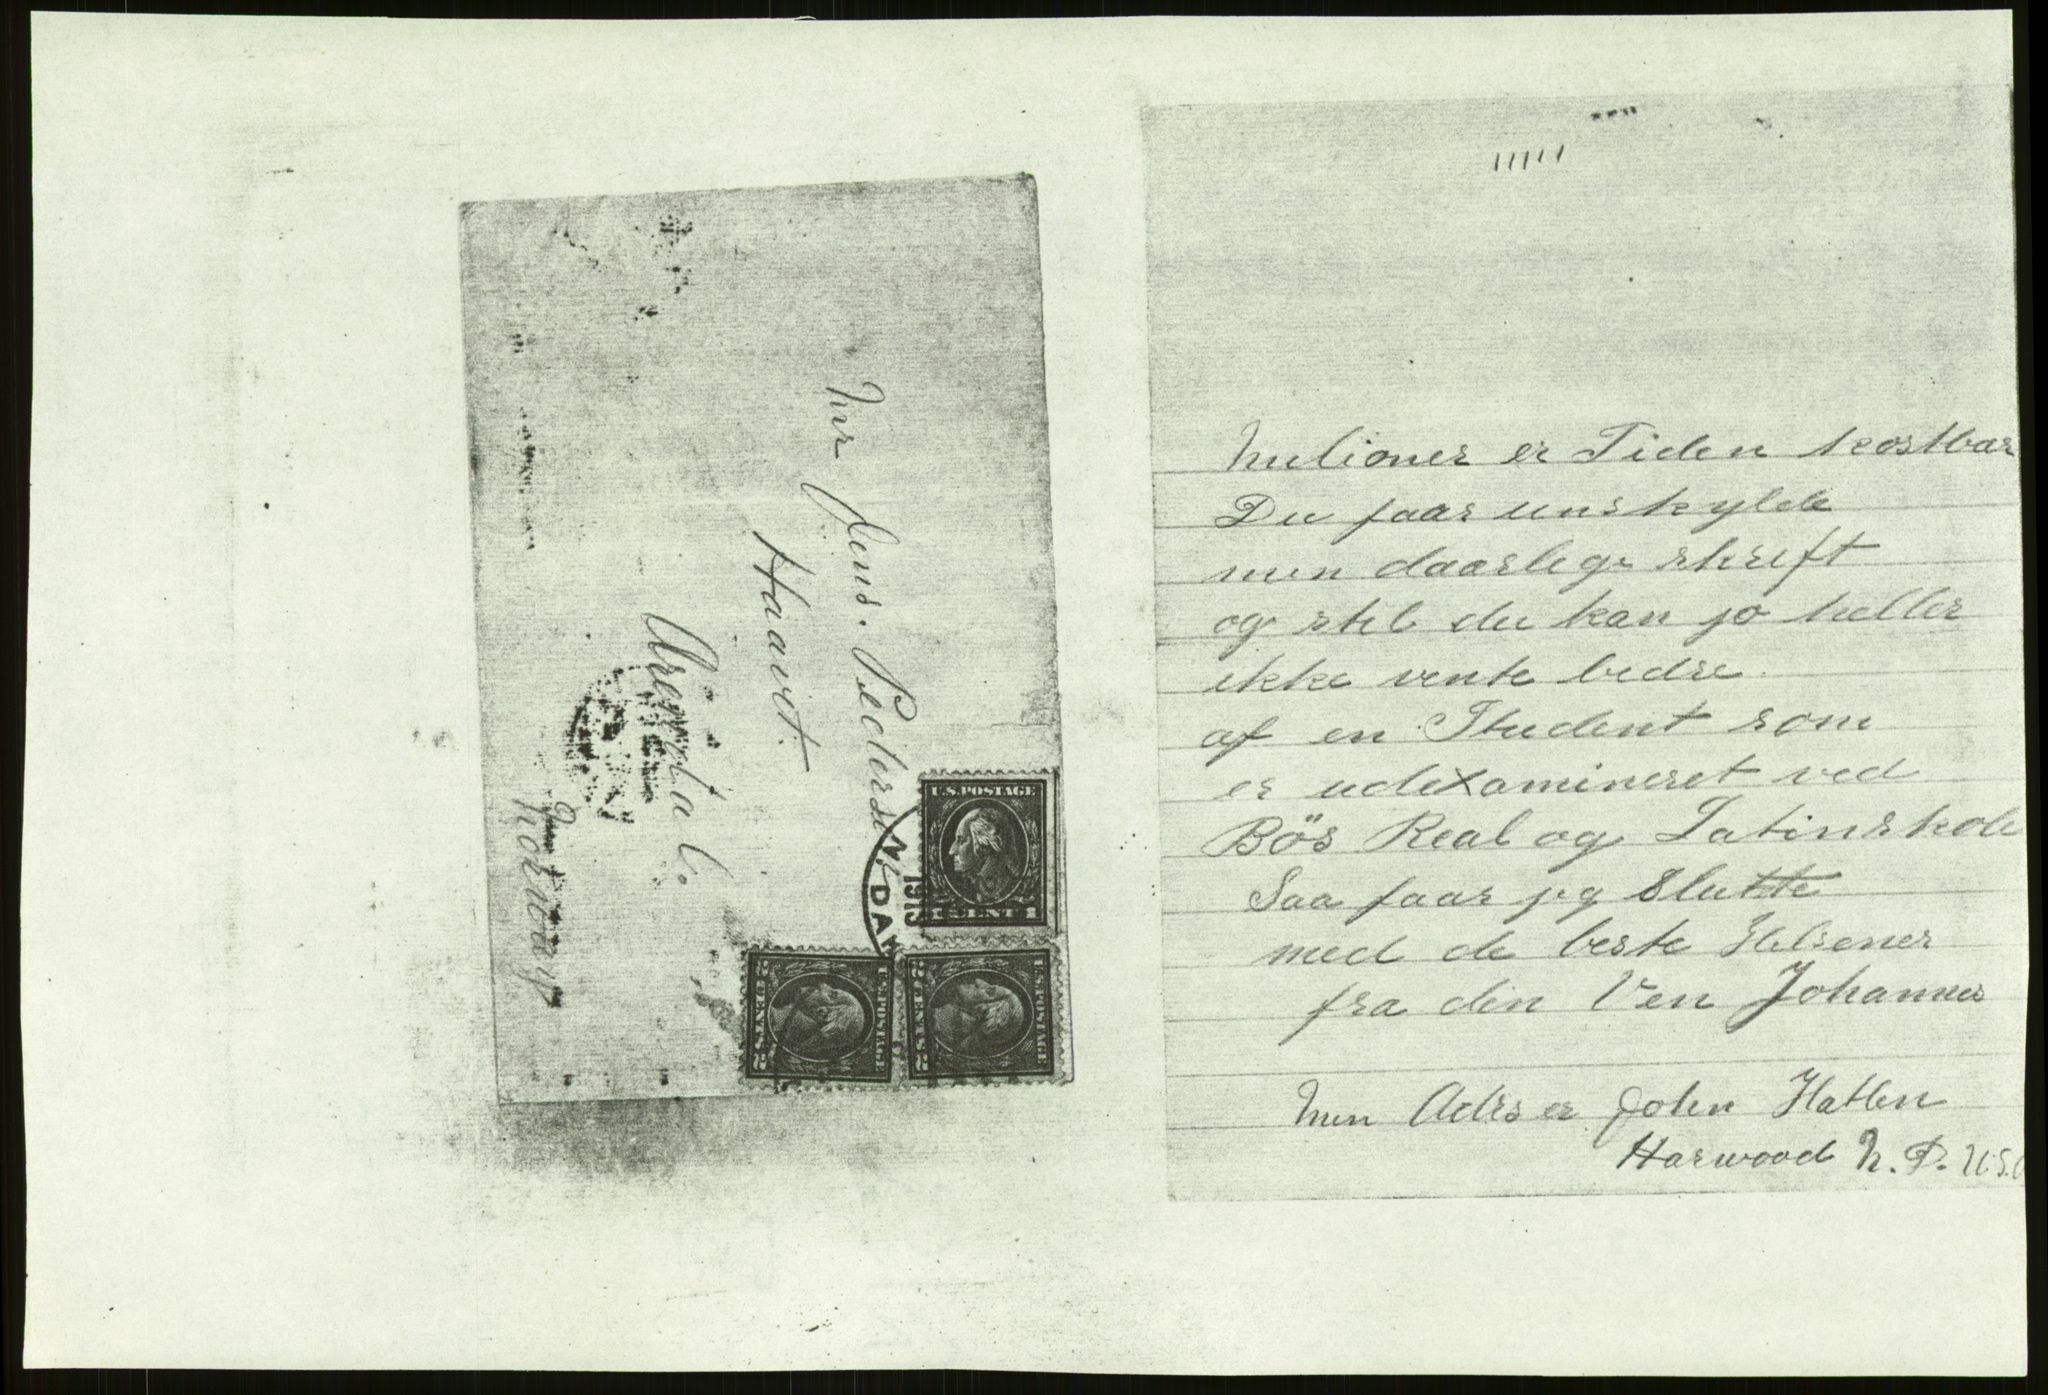 Mr Jens. Pederse
Haavet
Arendal.
Norway
N. DAK
1915
U.S. POSTAGE
1 CENT 1
U.S. POSTAGE
2 CENTS 2
U.S. POSTAGE
2 CENTS 2
Milioner er Tiden kostbar
Du faar unskylde
min daarlige skrift
og stil du kan jo heller
ikke vente bedre.
af en Student som
er udexamineret ved
Bös Real og Latinskole
Saa faar jeg Slutte
med de beste Helsener
fra din Ven Johannes
Min Adrs er John Hatlen
Harwood N. D. U.S.